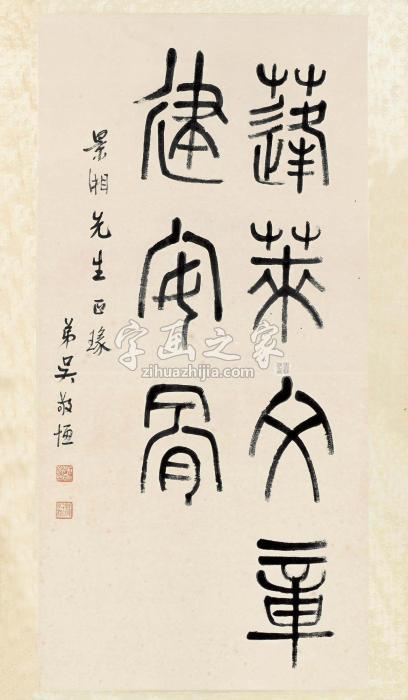 蓬萊文章
建安骨
景湘先生正瑑
弟吳敬恆
字画之家
zihuazhijia.com